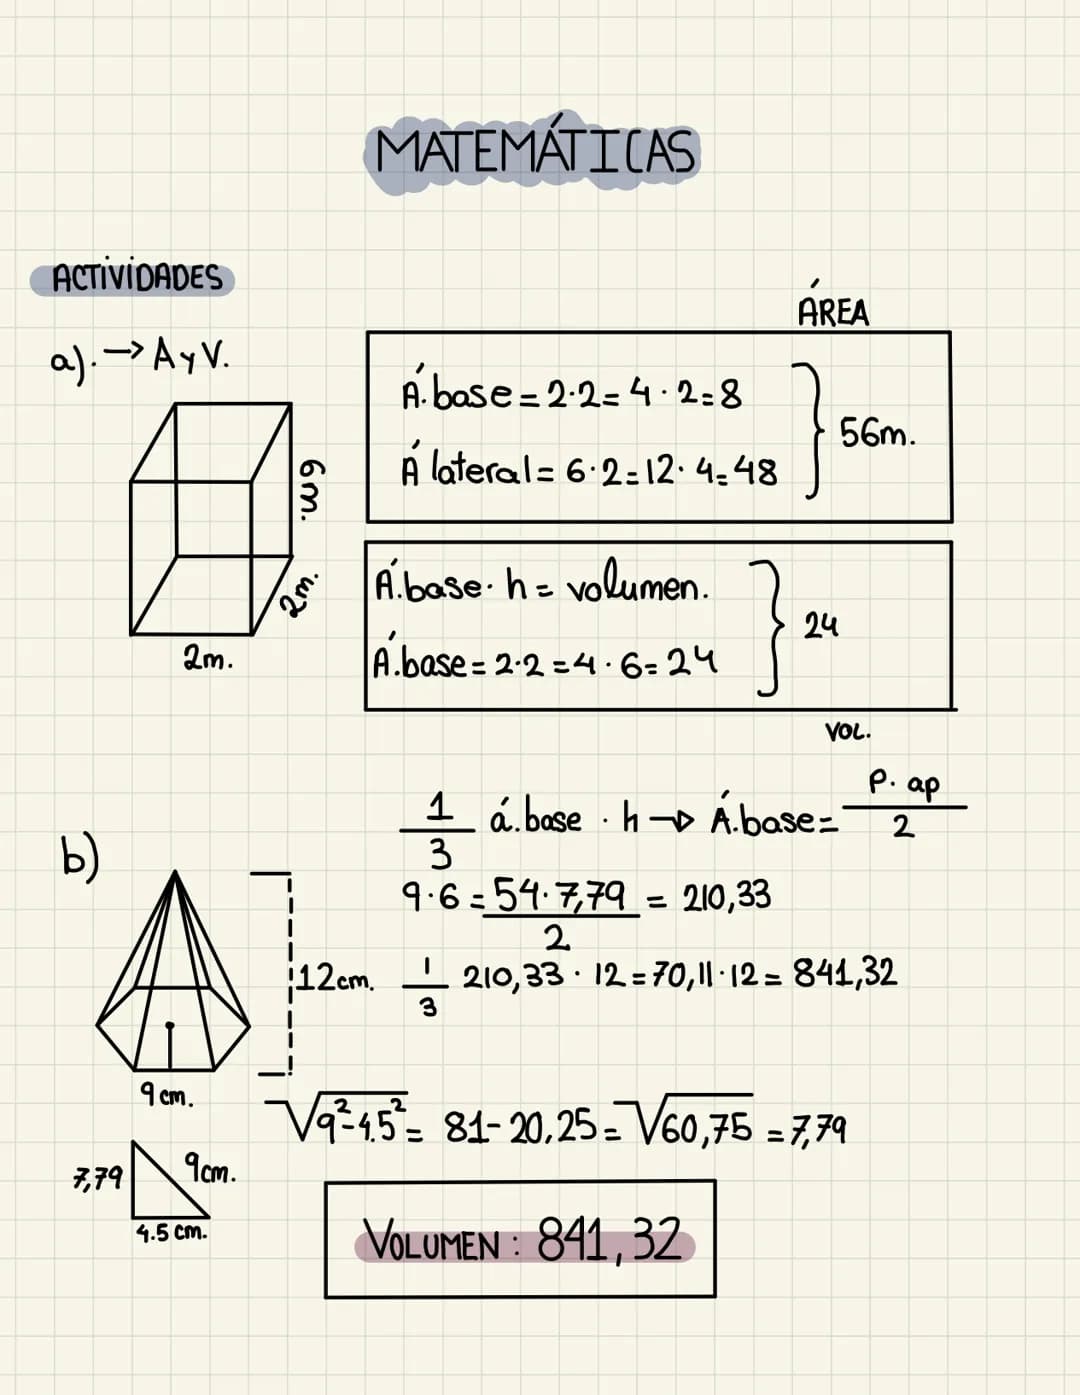 MATEMÁTICAS
ACTIVIDADES
a). → A y V.
6m.
2m.
2m.
ÁREA
Á.base = 2·2 = 4 · 2 = 8
Á lateral = 6·2 = 12 · 4 = 48
56m.
Á.base · h = volumen.
Á.base = 2·2 = 4 · 6 = 24
24
VOL.
b)
1/3 á.base · h → Á.base = P. ap/2
9·6 = 54·7,79/2 = 210,33
12cm.
1/3 210,33 · 12 = 70,11 · 12 = 841,32
9 cm.
√9²-4.5² = 81-20,25 = √60,75 = 7,79
7,79
9cm.
4.5 cm.
VOLUMEN: 841,32